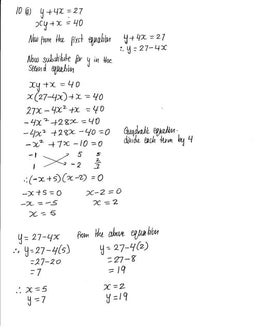 10 (i) y + 4x = 27
xy + x = 40
Now from the first equation y + 4x = 27
∴ y = 27 - 4x
Now substitute for y in the
second equation
xy + x = 40
x(27 - 4x) + x = 40
27x - 4x² + x = 40
-4x² + 28x = 40
-4x² + 28x - 40 = 0 Quadratic equation-
divide each term by 4
-x² + 7x - 10 = 0
-1 5 5
1 -2 2
∴ (-x + 5)(x - 2) = 0
-x + 5 = 0 x - 2 = 0
-x = -5 x = 2
x = 5
y = 27 - 4x from the above equation
∴ y = 27 - 4(5) y = 27 - 4(2)
= 27 - 20 = 27 - 8
= 7 = 19
∴ x = 5 x = 2
y = 7 y = 19